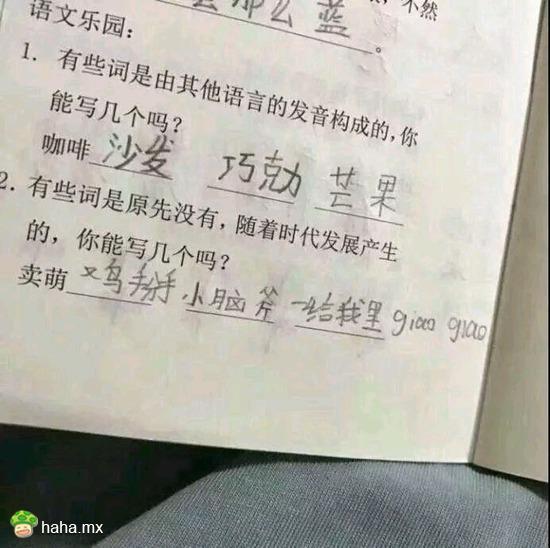 那么蓝。不然
语文乐园：
1. 有些词是由其他语言的发音构成的，你
能写几个吗？
咖啡 沙发 巧克力 芒果
2. 有些词是原先没有，随着时代发展产生
的，你能写几个吗？
卖萌 鸡掰 小脑斧 一给我里 giao giao
haha.mx